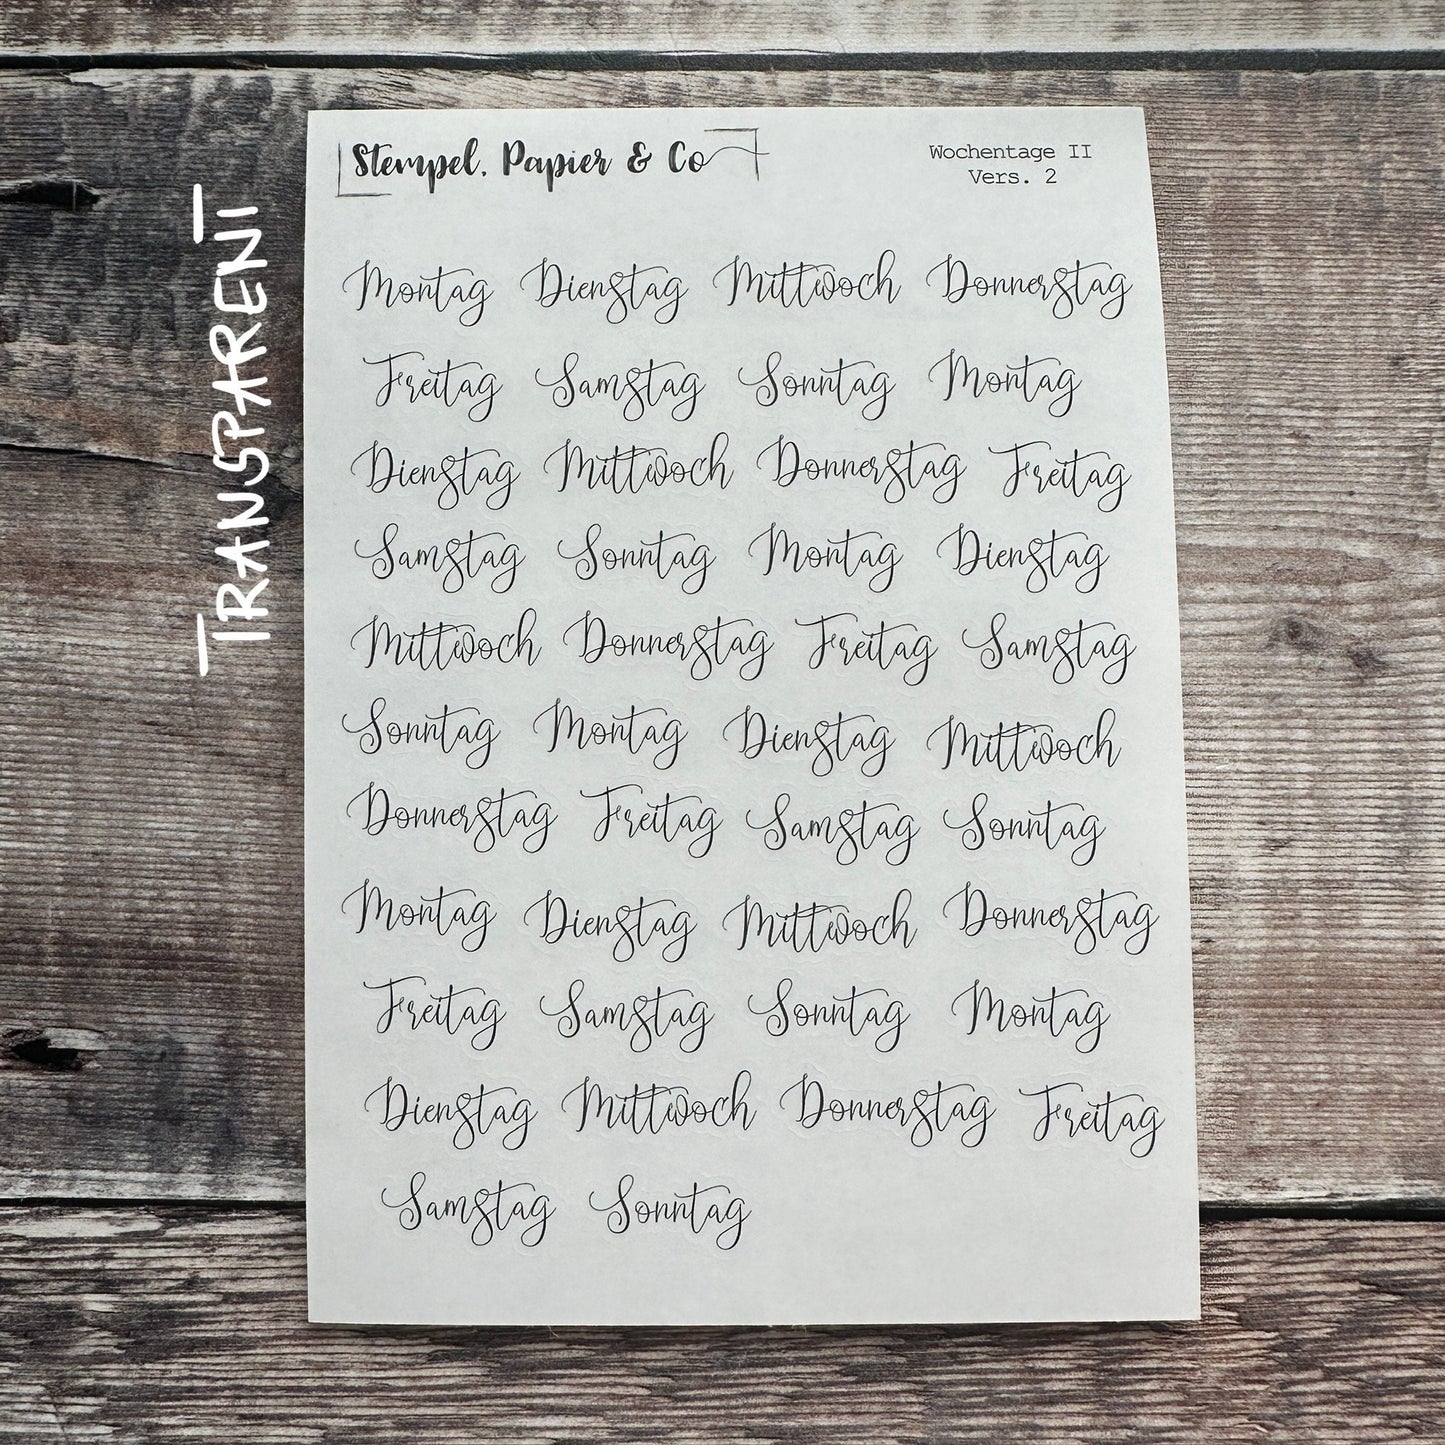 TRANSPARENT
Stempel, Papier & Co
Wochentage II
Vers. 2
Montag Dienstag Mittwoch Donnerstag
Freitag Samstag Sonntag Montag
Dienstag Mittwoch Donnerstag Freitag
Samstag Sonntag Montag Dienstag
Mittwoch Donnerstag Freitag Samstag
Sonntag Montag Dienstag Mittwoch
Donnerstag Freitag Samstag Sonntag
Montag Dienstag Mittwoch Donnerstag
Freitag Samstag Sonntag Montag
Dienstag Mittwoch Donnerstag Freitag
Samstag Sonntag